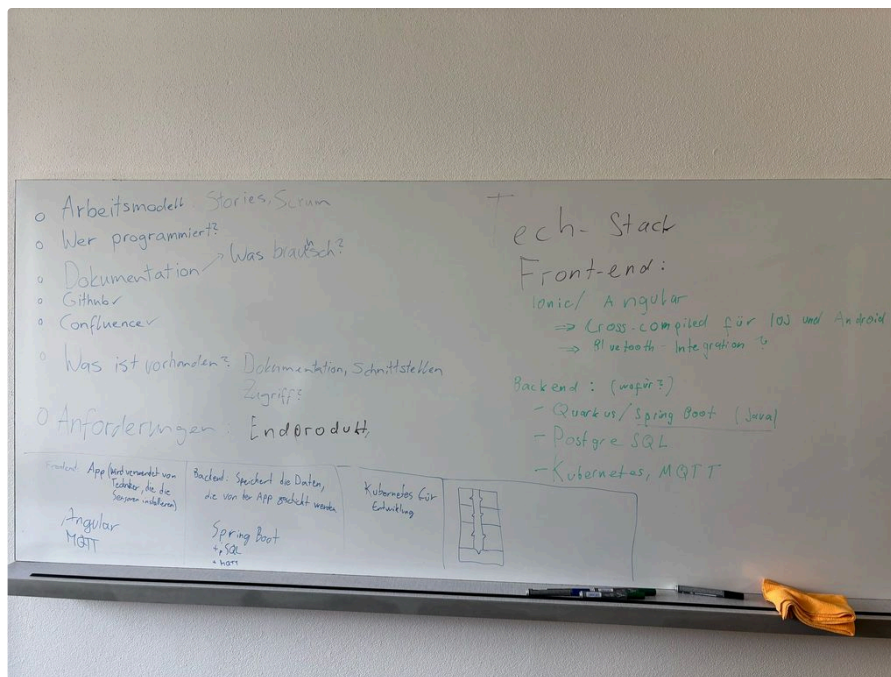 o Arbeitsmodell: Stories, Scrum
o Wer programmiert?
o Dokumentation → Was brauchsch?
o Github ✓
o Confluence ✓
o Was ist vorhanden? Dokumentation, Schnittstellen
Zugriff?
o Anforderungen: Endprodukt,
Frontend: App (wird verwendet von
Techniker, die die
Sensoren installieren)
Angular
MQTT
Backend: Speichert die Daten,
die von der App geschickt werden
Spring Boot
+ pSQL
+ MQTT
Kubernetes für
Entwicklung
Tech-Stack
Front-end:
Ionic/ Angular
⇒ Cross-compiled für IOS und Android
⇒ Bluetooth-Integration?
Backend: (wofür?)
- Quarkus/Spring Boot (Java)
- Postgre SQL
- Kubernetes, MQTT